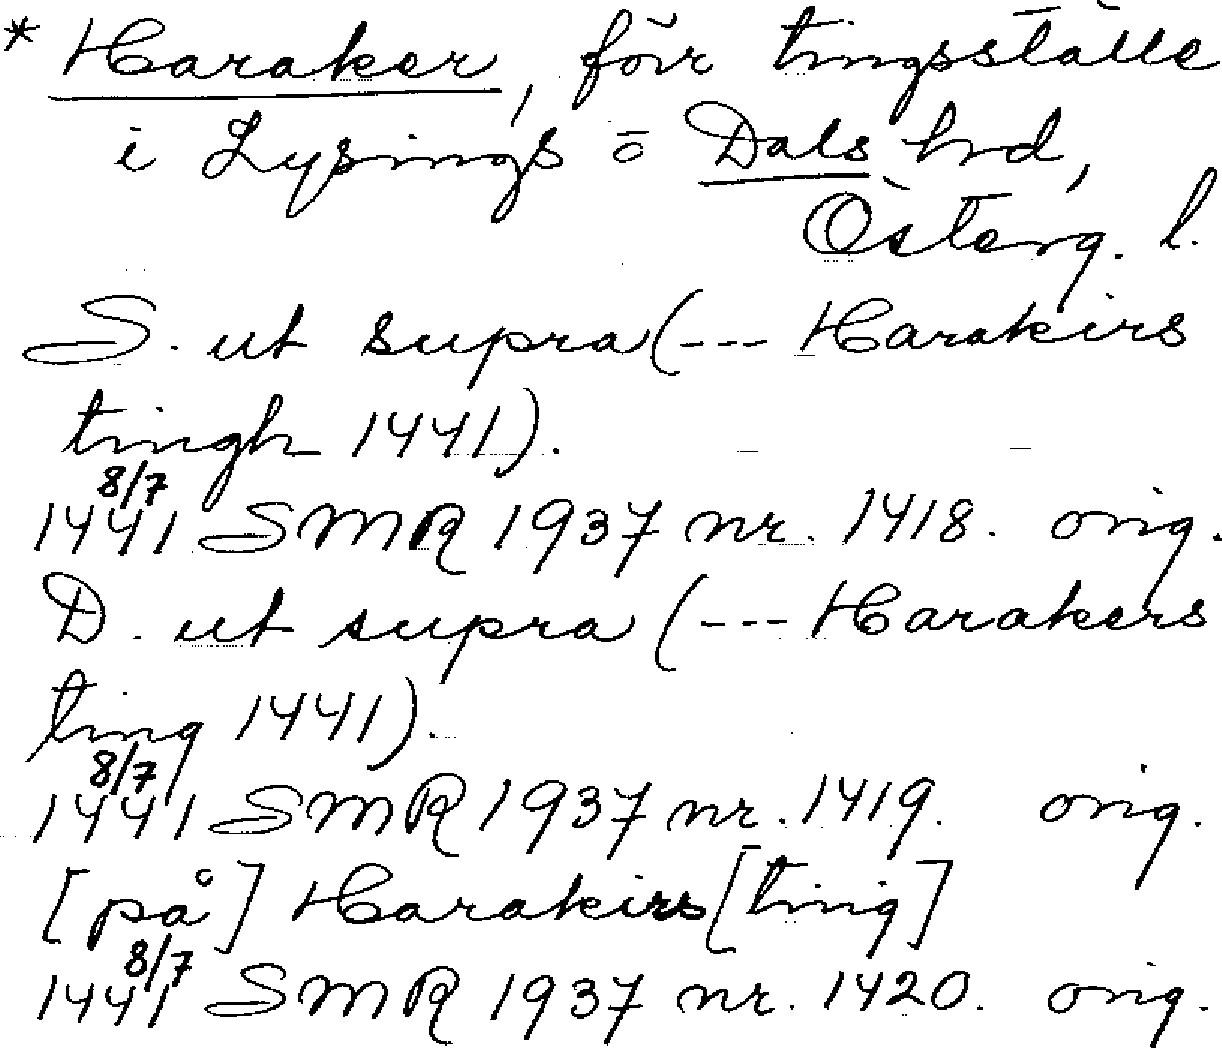 * Haraker, förr tingsställe
i Lysings o Dals hrd,
Österg. l.
S. ut supra (--- Harakirs
tingh 1441).
1441 8/7 SMR 1937 nr. 1418. orig.
D. ut supra (--- Harakers
ting 1441).
1441 8/7 SMR 1937 nr. 1419. orig.
[på] Harakirs[ting]
1441 8/7 SMR 1937 nr. 1420. orig.